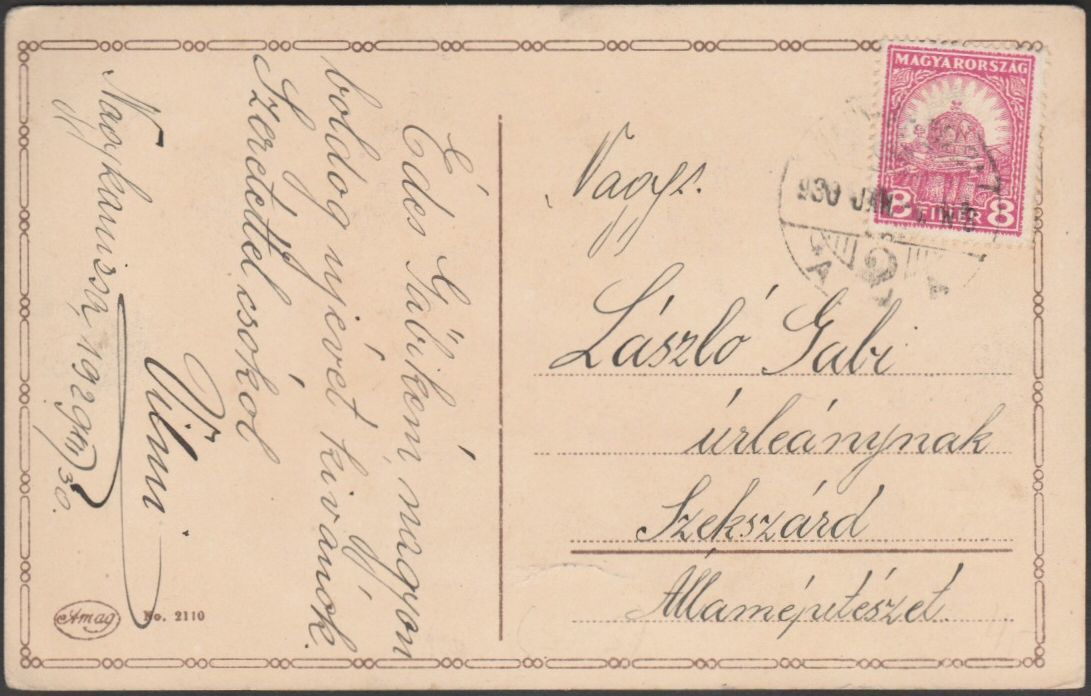 Édes Gábikém, nagyon
boldog ujévet kivánok.
Szeretettel csókol
Vilmi
Nagykanizsa, 1929 XII 30.
Amag
No. 2110
MAGYARORSZÁG
8 FILLÉR 8
930 JAN.
Nagys.
László Gabi
úrleánynak
Szekszárd
Államépitészet